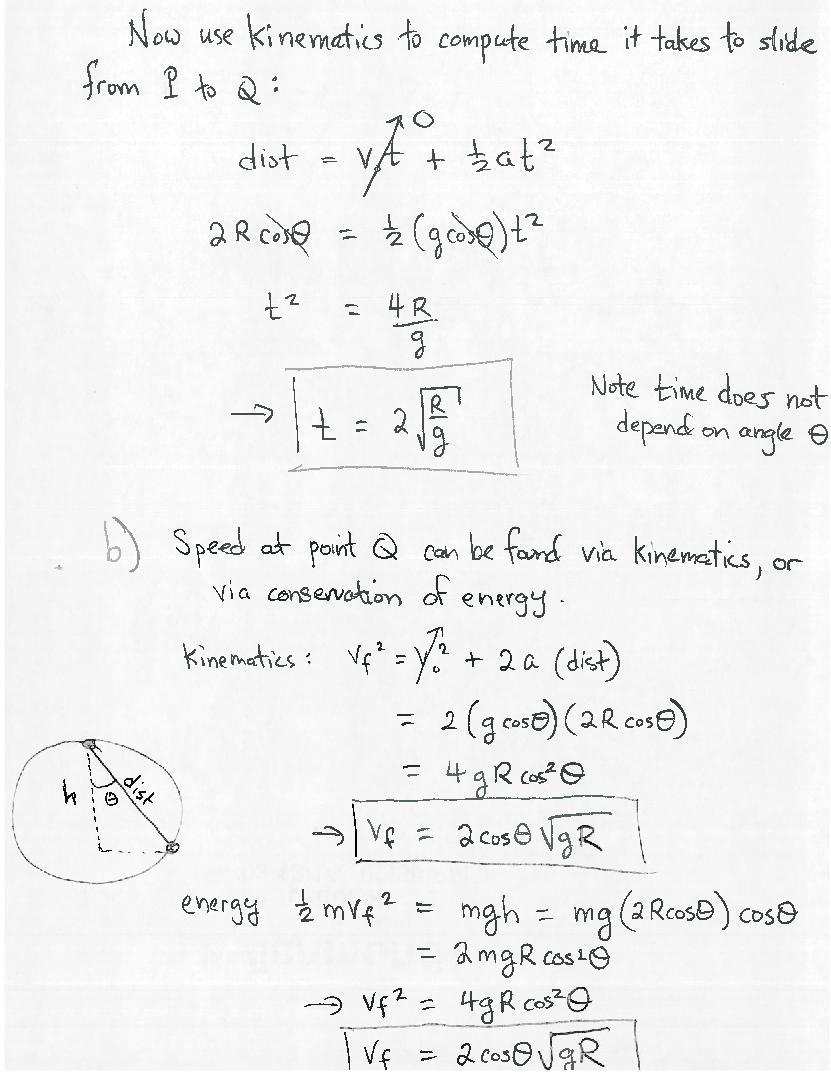 Now use kinematics to compute time it takes to slide
from P to Q :
dist = v₀t → 0 + ½at²
2R cosθ = ½ (g cosθ) t²
t² = 4R/g
→ t = 2√(R/g)
Note time does not
depend on angle θ
b) Speed at point Q can be found via kinematics, or
via conservation of energy.
kinematics: Vf² = V₀² + 2a (dist)
= 2 (g cosθ)(2R cosθ)
= 4gR cos²θ
h θ dist
→ Vf = 2cosθ √gR
energy ½mVf² = mgh = mg(2Rcosθ) cosθ
= 2mgR cos²θ
→ Vf² = 4gR cos²θ
Vf = 2cosθ√gR